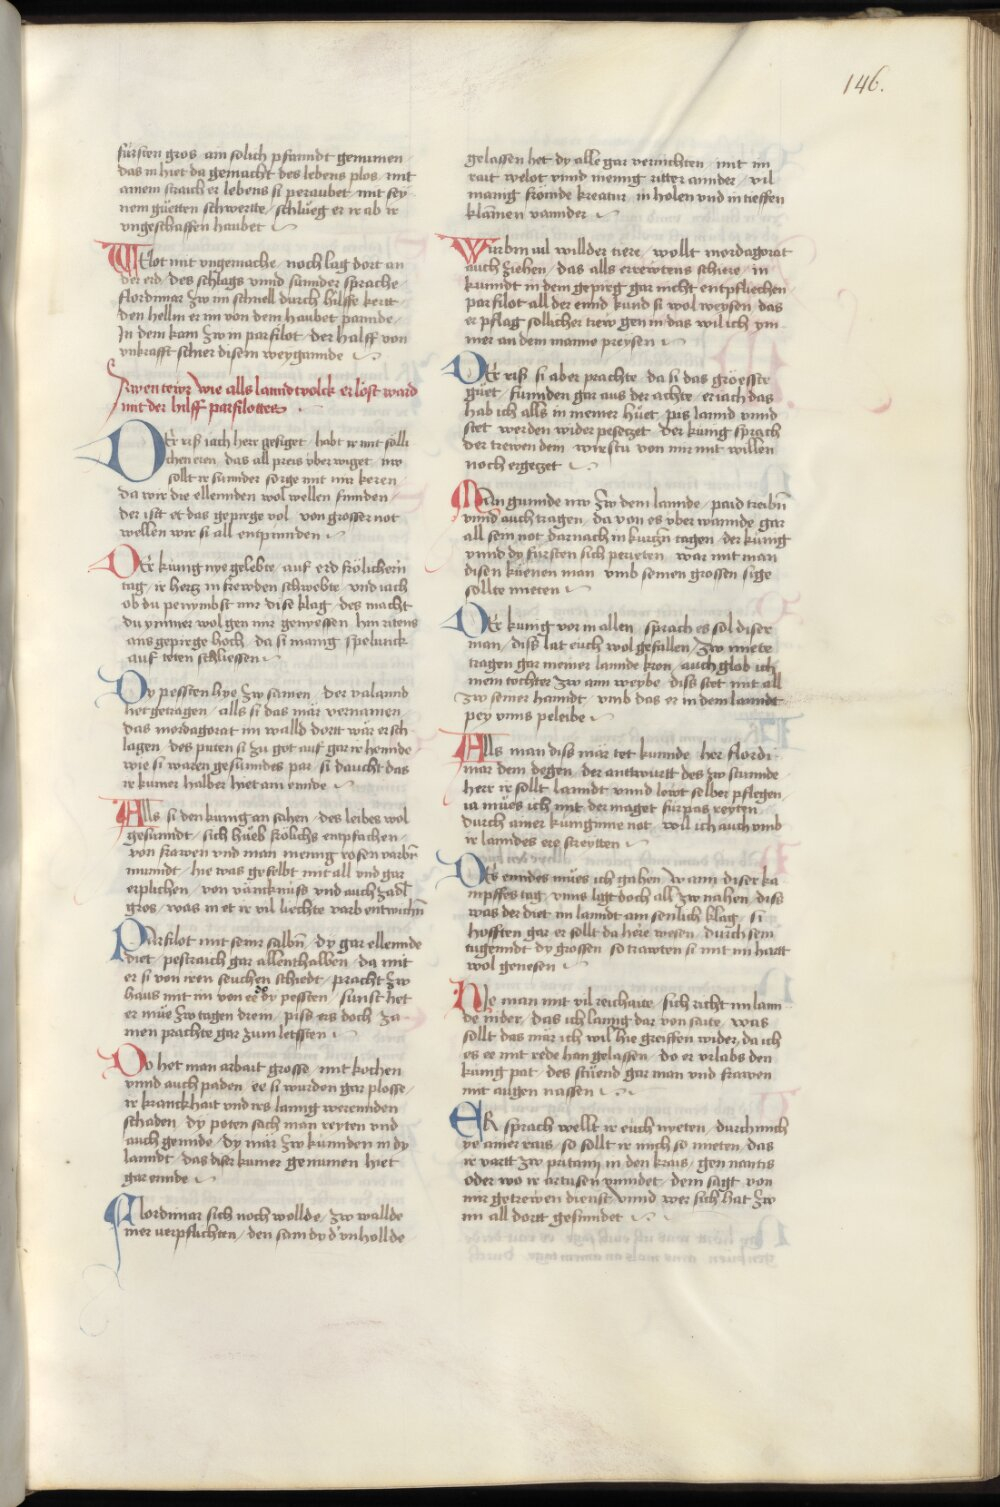 146.
fürsten gros am solich pfanndt genumen
das in hiet da gemacht des lebens plos mit
ainem straich er lebens si peraubet mit sey
nem güetten schwertte schlueg er ir ab ir
vngeschaffen haubet
Tlot mit vngemache noch lag dort an
der erd des schlags vnnd sunnder sprache
flordimar zw im schnell durch hilffe kertt
den hellm er im von dem haubet pannde
In dem kam zw in parfilot der halff von
vnkrafft schier disem weygannde
Awentewr wie alls lanndtvolck erlöst ward
mit der hilff parfilottes
DEr ris iach herr gesiget habt ir mit sölli
chen eren das all preis vber wiget nw
sollt ir sunnder sorge mit mir keren
da wir die ellennden wol wellen finnden
der ist et das gepirge vol von grosser not
wellen wir si all entpinnden
DEr küng nye gelebte auf erd frölichern
tag ir hertz in frewden schwebte vnd iach
ob du penymbst mir dise klag des macht
du ymmer wol gen mir geniessen hin ritens
ans gepirge hoch da si manig spelunck
auf teten schliessen
Dy pessten hye zw samen der valannd
het getragen alls si das mär vernamen
das mordagorat im walld dortt wär ersch
lagen des puten si zu got auf gar ir hennde
wie si waren gesunndes par si daucht das
ir kumer halber hiet am ennde
Alls si den kunig an sahen des leibes wol
gesunndt sich hueb frölichs entpfachen
von frawen vnd man mennig rosen varbn
munndt hie was geselbt mit all vnd gar
erplichen von vancknüss vnd auch zadl
gros was in et ir vil liechte varb entwichn
Parfilot mit seinr salbn dy gar ellennde
diet pestraich gar allenthalben da mit
er si von iren seuchen schiedt pracht zw
haus mit im von erd dy pessten sunst het
er mue zw tagen drein piss ers doch za
men prachte gar zum letssten
Do het man arbait grosse mit kochen
vnnd auch paden ee si wurden gar plosse
ir kranckhait vnd irs lanng werennden
schaden dy poten sach man reyten vnd
auch gennde dy mär zw kunnden in dy
lanndt das diser kumer genumen hiet
gar ennde
Flordimar sich noch wollde zw wallde
mer verpflichten den sam dy d' vnhollde
gelassen het dy alle gar vernichten mit im
rait welot vnnd mennig ritter annder vil
manig frömde kreatur in holen vnd in tieffen
klamen vannder
Wurbm vil willder tiere wollt mordagorat
auch ziehen das alls erwertens schiere in
kunndt in dem gepirg gar nicht entpfliechen
parfilot all der ennd kund si wol weysen das
er pflag sollicher trew gen in das wil ich ym
mer an dem manne preysen
DEr ris si aber prachte da si das gröesste
guet funnden gar aus der achte er iach das
hab ich alls in meiner huet pis lannd vnnd
stet werden wider pesetzet der kunig sprach
der trewen dein wirstu von mir mit willen
noch ergetzet
Man gunnde nw zw dem lannde paid treibn
vnnd auch tragen da von es vber wannde gar
all sein not darnach in kurtzn tagen der kunig
vnnd dy fürsten sich perieten war mit man
disen küenen man vmb seinen grossen sige
sollte mieten
DEr kunig vor in allen sprach es sol diser
man diss lat euch wol gefallen zw miete
tragen gar meiner lannde kron auch glob ich
mein tochter zw ain weybe diss stet mit all
zw seiner hanndt vmb das er in dem lanndt
pey vnns peleibe
Alls man diss mär tet kunnde her flordi
mar dem degen der antwurtt des zw stunnde
herr ir sollt lanndt vnnd lewt selber pflegen
ia mues ich mit der maget fürpas reyten
durch ainer kunginne not wil ich auch vmb
ir lanndes ere streytten
DEs enndes mues ich gahen wann diser ka
mpffes tag vnns ligt doch all zw nahen diss
was der diet im lanndt ain senlich klag si
hofften gar er sollt da here wesen durch sein
tugenndt dy grossen so trawten si mit im hartt
wol genesen
Wie man mit vil reichaite sich richt im lann
de nider das ich lanng dar von saite was
sollt das mär ich wil hie greiffen wider da ich
es ee mit rede han gelassen do er vrlabs den
kunig pat des stüend gar man vnd frawen
mit augen nassen
ER sprach wellt ir euch nyeten durch mich
ye ainer rais so sollt ir mich so mieten das
ir vartt zw pritani in den krais gen nantis
oder wo ir artusen vinndet dem sagt von
mir getrewen dienst vnnd wer sich hat zw
im all dortt gesinndet